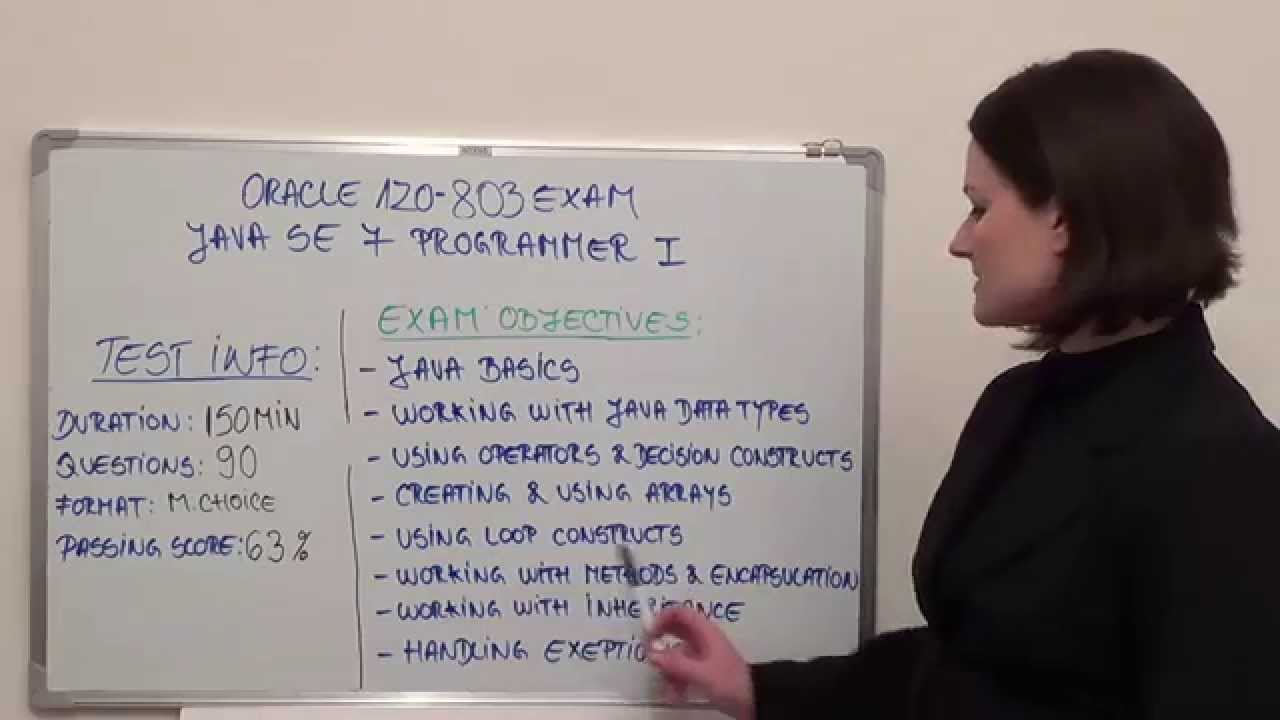 ORACLE 1Z0-803 EXAM
JAVA SE 7 PROGRAMMER I
TEST INFO:
DURATION: 150 MIN
QUESTIONS: 90
FORMAT: M. CHOICE
PASSING SCORE: 63%
EXAM OBJECTIVES:
- JAVA BASICS
- WORKING WITH JAVA DATA TYPES
- USING OPERATORS & DECISION CONSTRUCTS
- CREATING & USING ARRAYS
- USING LOOP CONSTRUCTS
- WORKING WITH METHODS & ENCAPSULATION
- WORKING WITH INHERITANCE
- HANDLING